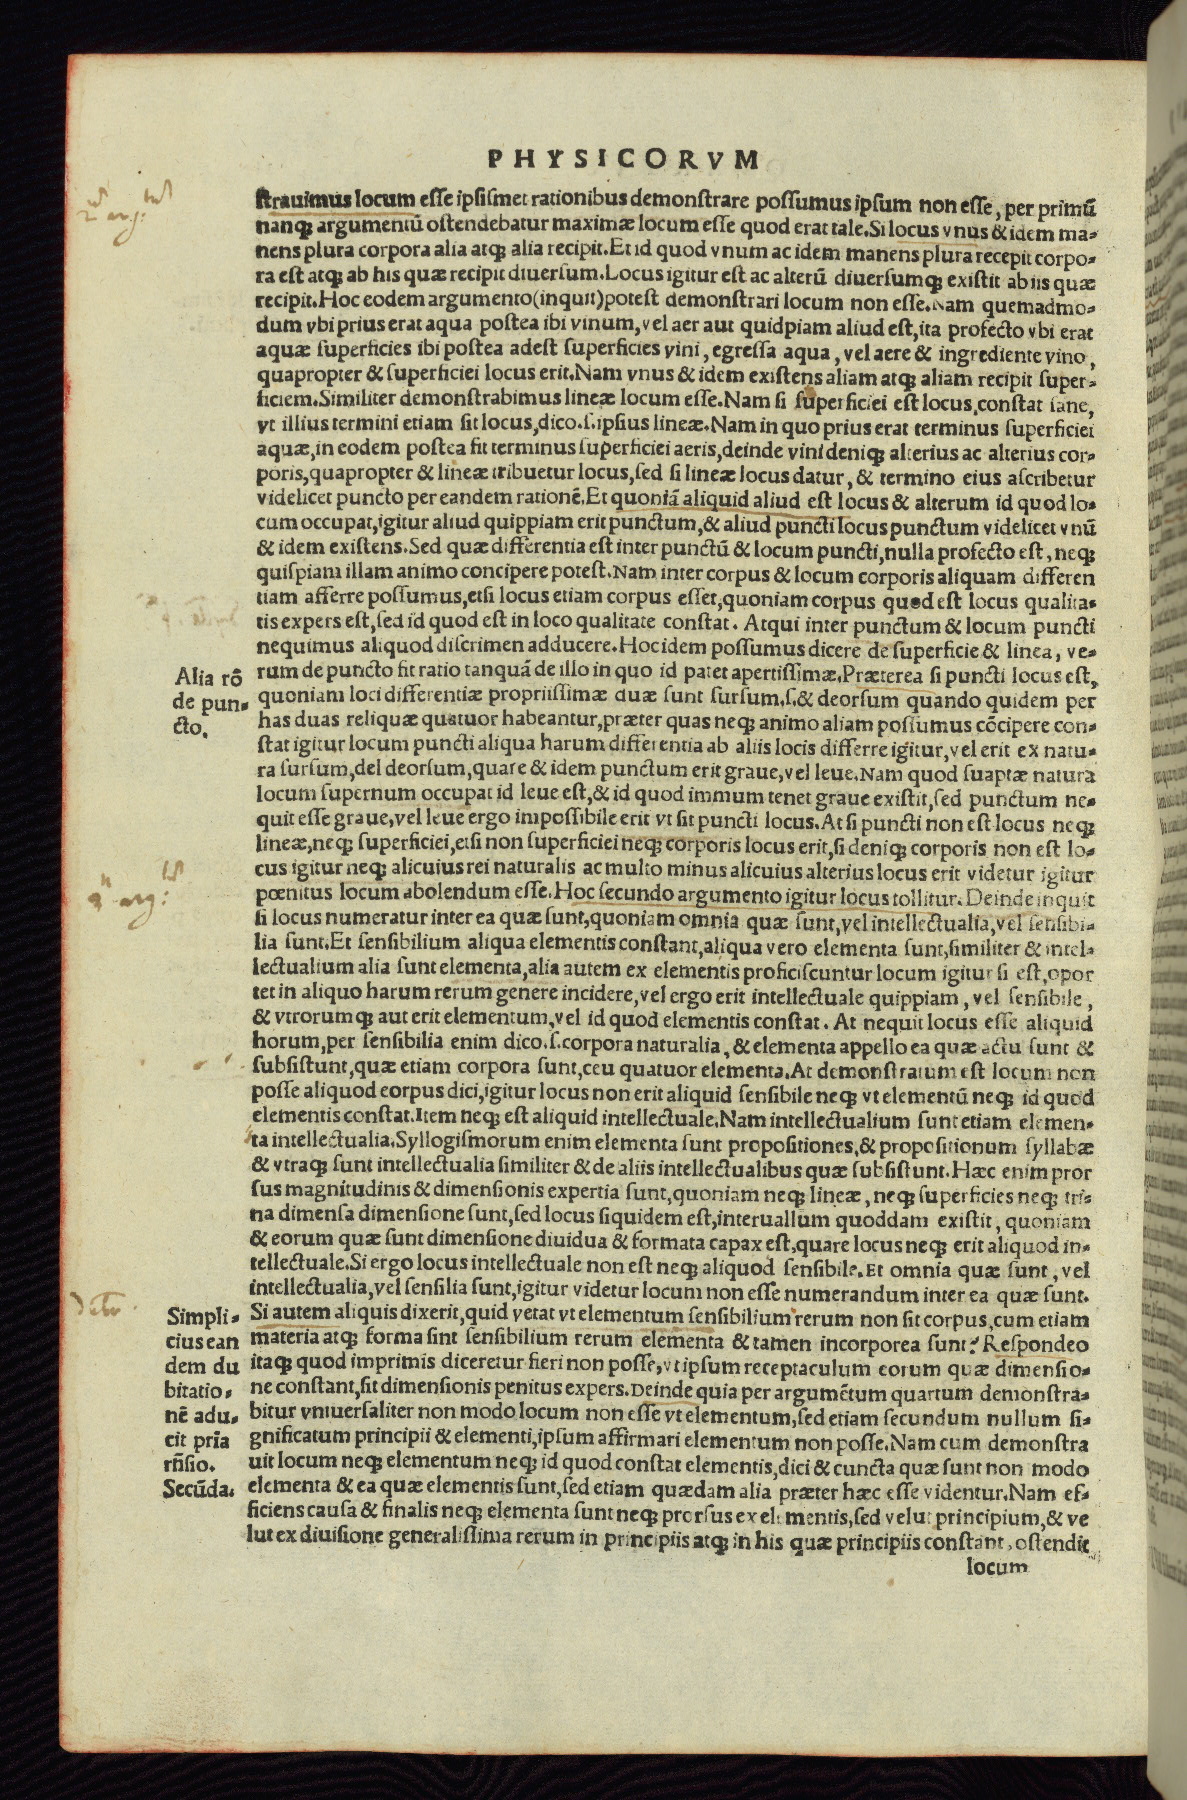 PHYSICORVM
strauimus locum esse ipsismet rationibus demonstrare possumus ipsum non esse, per primū
nanq; argumentū ostendebatur maximæ locum esse quod erat tale. Si locus vnus & idem ma-
nens plura corpora alia atq; alia recipit. Et id quod vnum ac idem manens plura recepit corpo-
ra est atq; ab his quæ recipit diuersum. Locus igitur est ac alterū diuersumq; existit ab iis quæ
recipit. Hoc eodem argumento (inquit) potest demonstrari locum non esse. Nam quemadmo-
dum vbi prius erat aqua postea ibi vinum, vel aer aut quidpiam aliud est, ita profecto vbi erat
aquæ superficies ibi postea adest superficies vini, egressa aqua, vel aere & ingrediente vino,
quapropter & superficiei locus erit. Nam vnus & idem existens aliam atq; aliam recipit super-
ficiem. Similiter demonstrabimus lineæ locum esse. Nam si superficiei est locus, constat sane,
vt illius termini etiam sit locus, dico. s. ipsius lineæ. Nam in quo prius erat terminus superficiei
aquæ, in eodem postea fit terminus superficiei aeris, deinde vini deniq; alterius ac alterius cor-
poris, quapropter & lineæ tribuetur locus, sed si lineæ locus datur, & termino eius ascribetur
videlicet puncto per eandem rationē. Et quoniā aliquid aliud est locus & alterum id quod lo-
cum occupat, igitur aliud quippiam erit punctum, & aliud puncti locus punctum videlicet vnū
& idem existens. Sed quæ differentia est inter punctū & locum puncti, nulla profecto est, neq;
quispiam illam animo concipere potest. Nam inter corpus & locum corporis aliquam differen
tiam afferre possumus, etsi locus etiam corpus esset, quoniam corpus quod est locus qualita-
tis expers est, sed id quod est in loco qualitate constat. Atqui inter punctum & locum puncti
nequimus aliquod discrimen adducere. Hoc idem possumus dicere de superficie & linea, ve-
rum de puncto fit ratio tanquā de illo in quo id patet apertissimæ. Præterea si puncti locus est,
quoniam loci differentiæ propriissimæ duæ sunt sursum. s. & deorsum quando quidem per
has duas reliquæ quatuor habeantur, præter quas neq; animo aliam possumus cōcipere con-
stat igitur locum puncti aliqua harum differentia ab aliis locis differre igitur, vel erit ex natu-
ra sursum, del deorsum, quare & idem punctum erit graue, vel leue. Nam quod suaptæ natura
locum supernum occupat id leue est, & id quod immum tenet graue existit, sed punctum ne-
quit esse graue, vel leue ergo impossibile erit vt sit puncti locus. At si puncti non est locus neq;
lineæ, neq; superficiei, etsi non superficiei neq; corporis locus erit, si deniq; corporis non est lo-
cus igitur neq; alicuius rei naturalis ac multo minus alicuius alterius locus erit videtur igitur
pœnitus locum abolendum esse. Hoc secundo argumento igitur locus tollitur. Deinde inquit
si locus numeratur inter ea quæ sunt, quoniam omnia quæ sunt, vel intellectualia, vel sensibi-
lia sunt. Et sensibilium aliqua elementis constant, aliqua vero elementa sunt, similiter & intel-
lectualium alia sunt elementa, alia autem ex elementis proficiscuntur locum igitur si est, opor
tet in aliquo harum rerum genere incidere, vel ergo erit intellectuale quippiam, vel sensibile,
& vtrorumq; aut erit elementum, vel id quod elementis constat. At nequit locus esse aliquid
horum, per sensibilia enim dico. s. corpora naturalia, & elementa appello ea quæ actu sunt &
subsistunt, quæ etiam corpora sunt, ceu quatuor elementa. At demonstratum est locum non
posse aliquod eorpus dici, igitur locus non erit aliquid sensibile neq; vt elementū neq; id quod
elementis constat. Item neq; est aliquid intellectuale. Nam intellectualium sunt etiam elemen-
ta intellectualia. Syllogismorum enim elementa sunt propositiones, & propositionum syllabæ
& vtraq; sunt intellectualia similiter & de aliis intellectualibus quæ subsistunt. Hæc enim pror
sus magnitudinis & dimensionis expertia sunt, quoniam neq; lineæ, neq; superficies neq; tri-
na dimensa dimensione sunt, sed locus siquidem est, interuallum quoddam existit, quoniam
& eorum quæ sunt dimensione diuidua & formata capax est, quare locus neq; erit aliquod in-
tellectuale. Si ergo locus intellectuale non est neq; aliquod sensibile. Et omnia quæ sunt, vel
intellectualia, vel sensilia sunt, igitur videtur locum non esse numerandum inter ea quæ sunt.
Si autem aliquis dixerit, quid vetat vt elementum sensibilium rerum non sit corpus, cum etiam
materia atq; forma sint sensibilium rerum elementa & tamen incorporea sunt? Respondeo
itaq; quod imprimis diceretur fieri non posse, vt ipsum receptaculum eorum quæ dimensio-
ne constant, sit dimensionis penitus expers. Deinde quia per argumētum quartum demonstra-
bitur vniuersaliter non modo locum non esse vt elementum, sed etiam secundum nullum si-
gnificatum principii & elementi, ipsum affirmari elementum non posse. Nam cum demonstra
uit locum neq; elementum neq; id quod constat elementis, dici & cuncta quæ sunt non modo
elementa & ea quæ elementis sunt, sed etiam quædam alia præter hæc esse videntur. Nam ef-
ficiens causa & finalis neq; elementa sunt neq; prorsus ex elementis, sed velut principium, & ve
lut ex diuisione generalissima rerum in principiis atq; in his quæ principiis constant, ostendit
locum
Alia rō
de pun-
cto.
Simpli-
cius ean
dem du
bitatio-
nē adu-
cit pria
rñsio.
Secūda.